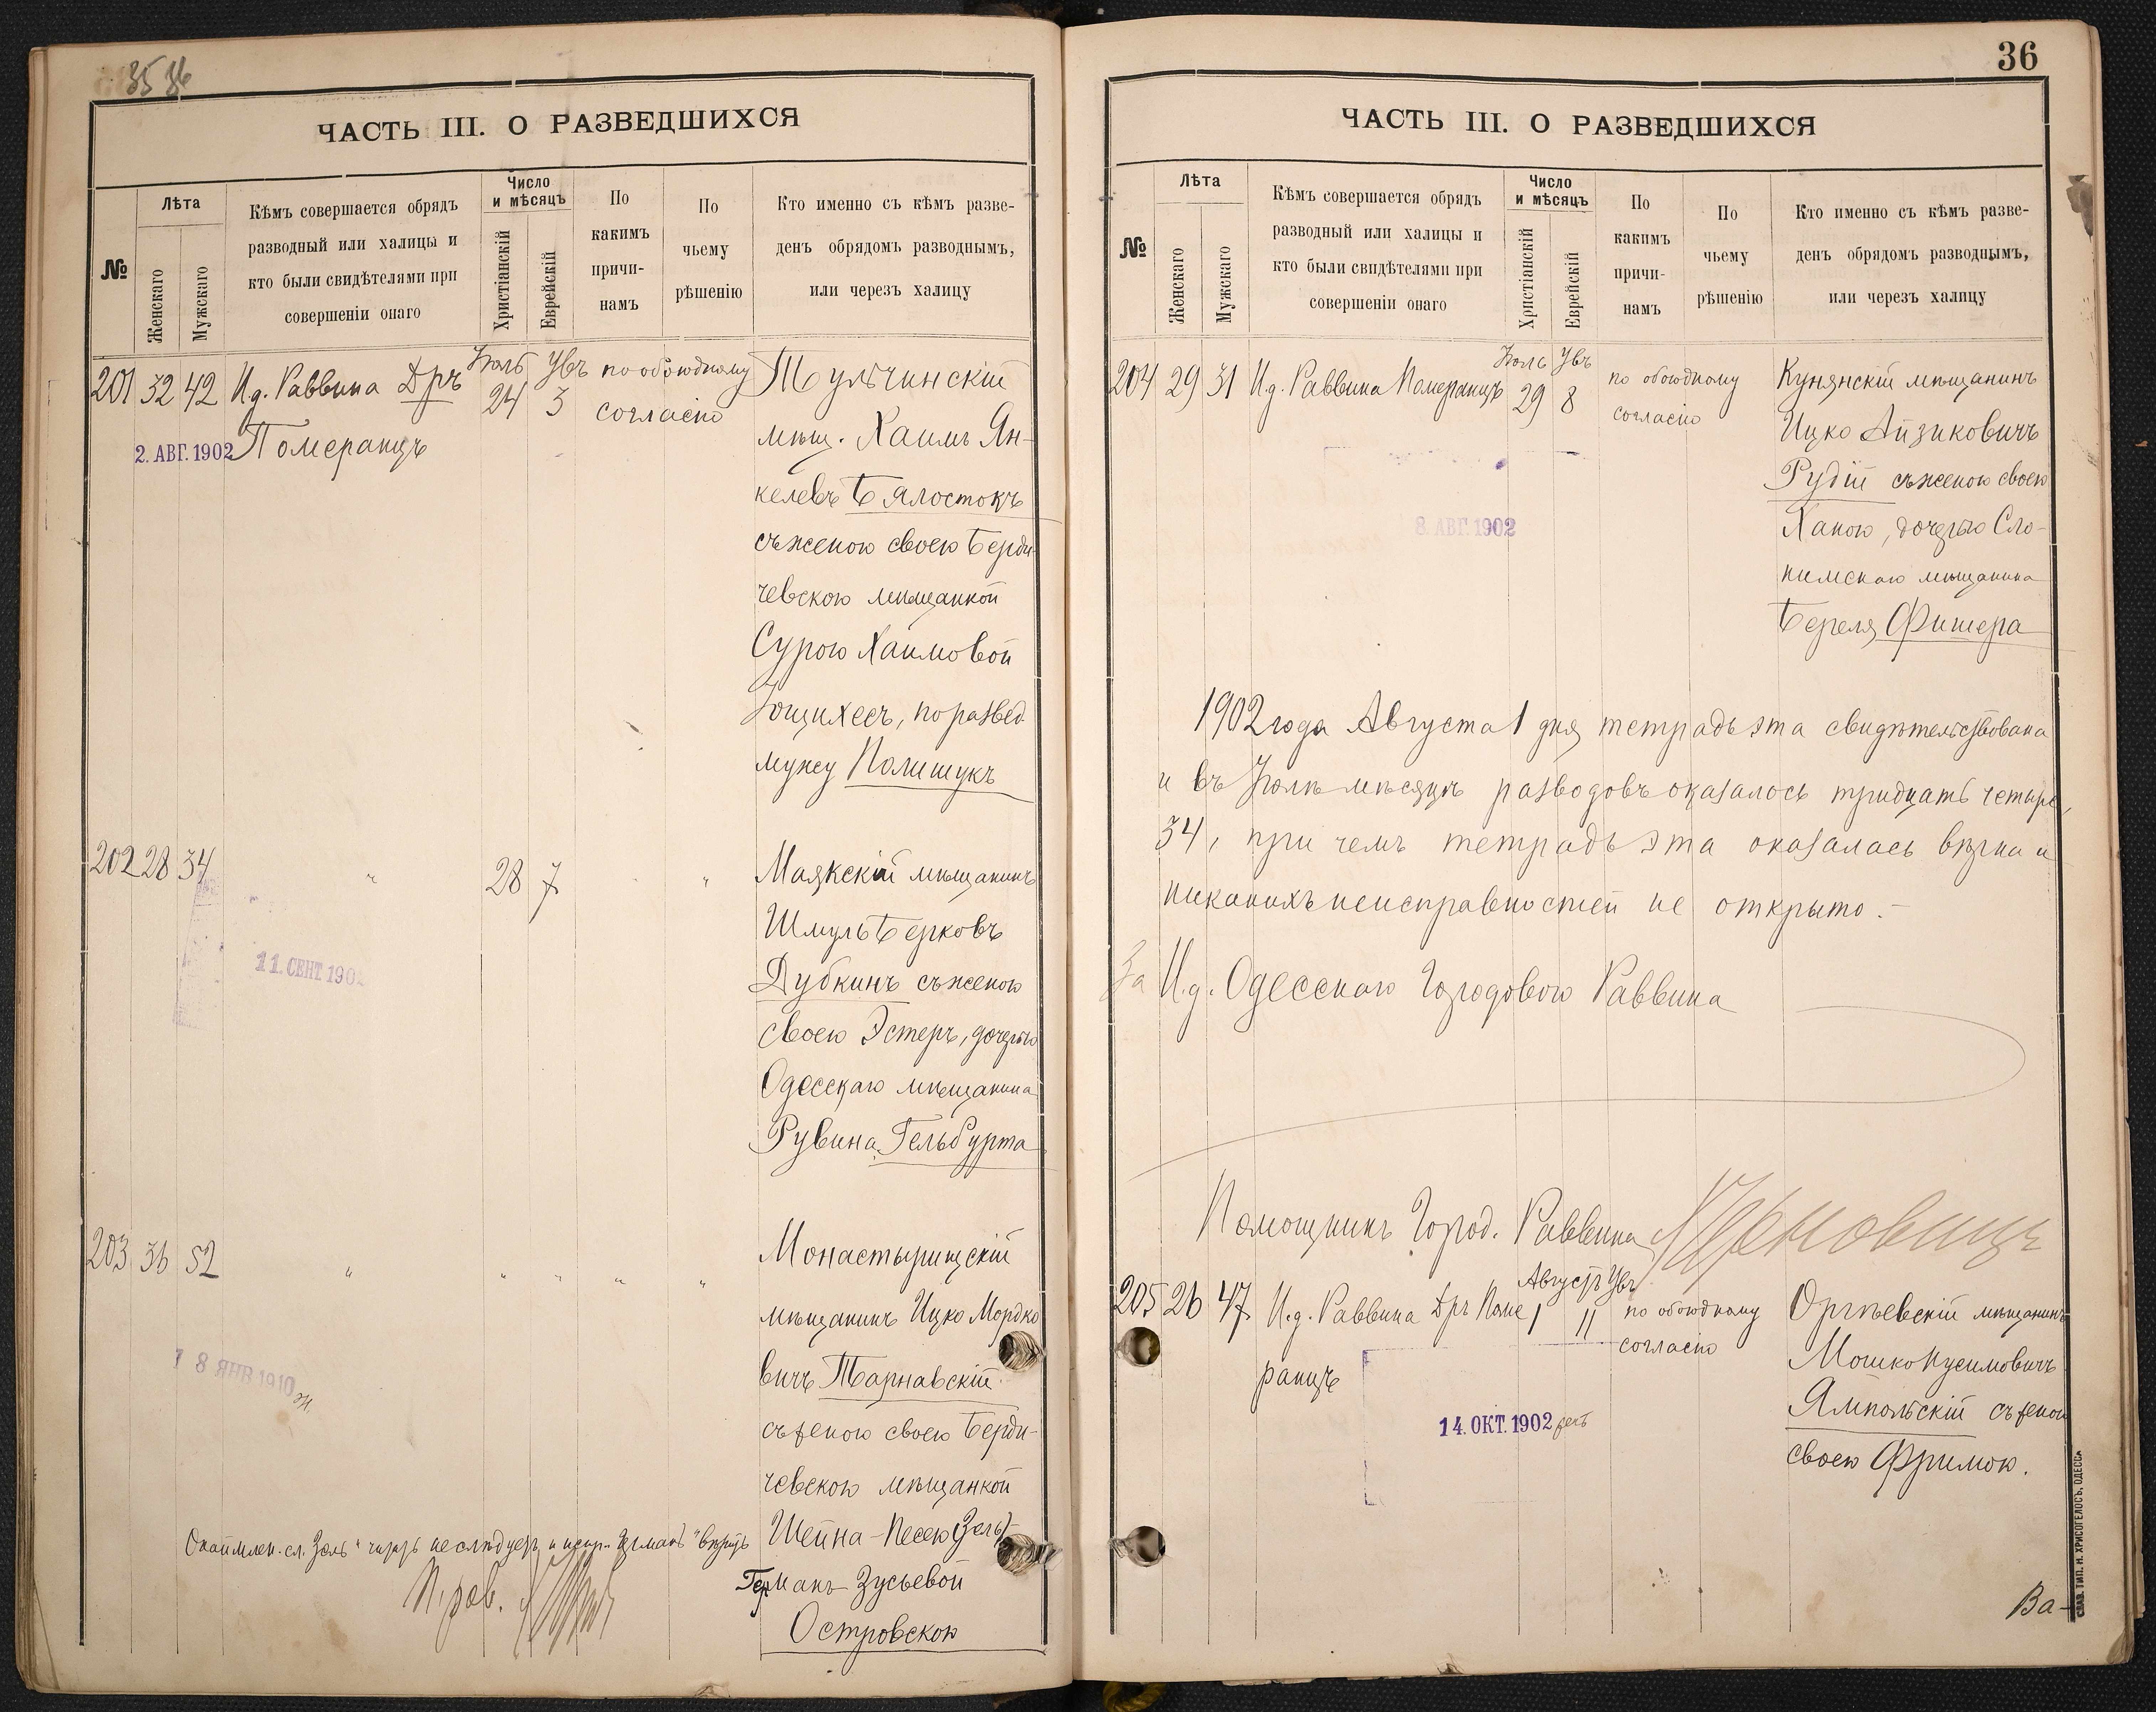 35 36
ЧАСТЬ III. О РАЗВЕДШИХСЯ
№
Лѣта
Женскаго
Мужскаго
Кѣмъ совершается обрядъ
разводный или халицы и
кто были свидѣтелями при
совершеніи онаго
Число
и мѣсяцъ
Христіанскій
Еврейскій
По
какимъ
причи-
намъ
По
чьему
рѣшенію
Кто именно съ кѣмъ разве-
денъ обрядомъ разводнымъ,
или черезъ халицу
201 32 42 И.д. Раввина Дръ
Померанцъ
2. АВГ. 1902
Іюль Увъ
24 3
по обоюдному
согласію
Тульчинскій
мѣщ. Хаимъ Ян-
келевъ Бялостокъ
съ женою своею Берди-
чевскою мѣщанкой
Сурою Хаимовой
Іоцихесъ, по развед.
мужу Полищукъ
202 28 34 " 28 7 "
11. СЕНТ. 190
Маякскій мѣщанинъ
Шмуль Берковъ
Дубкинъ съ женою
своею Эстеръ, дочерью
Одесскаго мѣщанина
Рувина Гельбурта
203 36 52 " " " " "
1 8 ЯНВ 1910
Монастырищскій
мѣщанинъ Ицко Мордко
вичъ Тарнавскій
съ женою своею Берди-
чевскою мѣщанкой
Шейна-Песею (Зель)-
Германъ Зусьевой
Островскою
П. рав.
36
ЧАСТЬ III. О РАЗВЕДШИХСЯ
№
Лѣта
Женскаго
Мужскаго
Кѣмъ совершается обрядъ
разводный или халицы и
кто были свидѣтелями при
совершеніи онаго
Число
и мѣсяцъ
Христіанскій
Еврейскій
По
какимъ
причи-
намъ
По
чьему
рѣшенію
Кто именно съ кѣмъ разве-
денъ обрядомъ разводнымъ,
или черезъ халицу
204 29 31 И.д. Раввина Померанцъ
Іюль Увъ
29 8
по обоюдному
согласію
8. АВГ. 1902
Кунянскій мѣщанинъ
Ицко Айзиковичъ
Рудій съ женою своею
Ханою, дочерью Сло-
нимскаго мѣщанина
Береля Фишера
1902 года Августа 1 дня тетрадь эта свидѣтельствована
и въ Іюлѣ мѣсяцѣ разводовъ оказалось тридцать четыре,
34, при чемъ тетрадь эта оказалась вѣрна и
никакихъ неисправностей не открыто.-
За И.д. Одесскаго Городового Раввина
Помощникъ Город. Раввина
205 26 47 И.д. Раввина Дръ Поме
ранцъ
Августъ Увъ
1 11
по обоюдному
согласію
14. ОКТ. 1902
Оргѣевскій мѣщанинъ
Мошко Нусимовичъ
Ямпольскій съ женою
своею Фримою.
Ва-
СЛАВ. ТИП. Н. ХРИСОГЕЛОСЪ, ОДЕССА